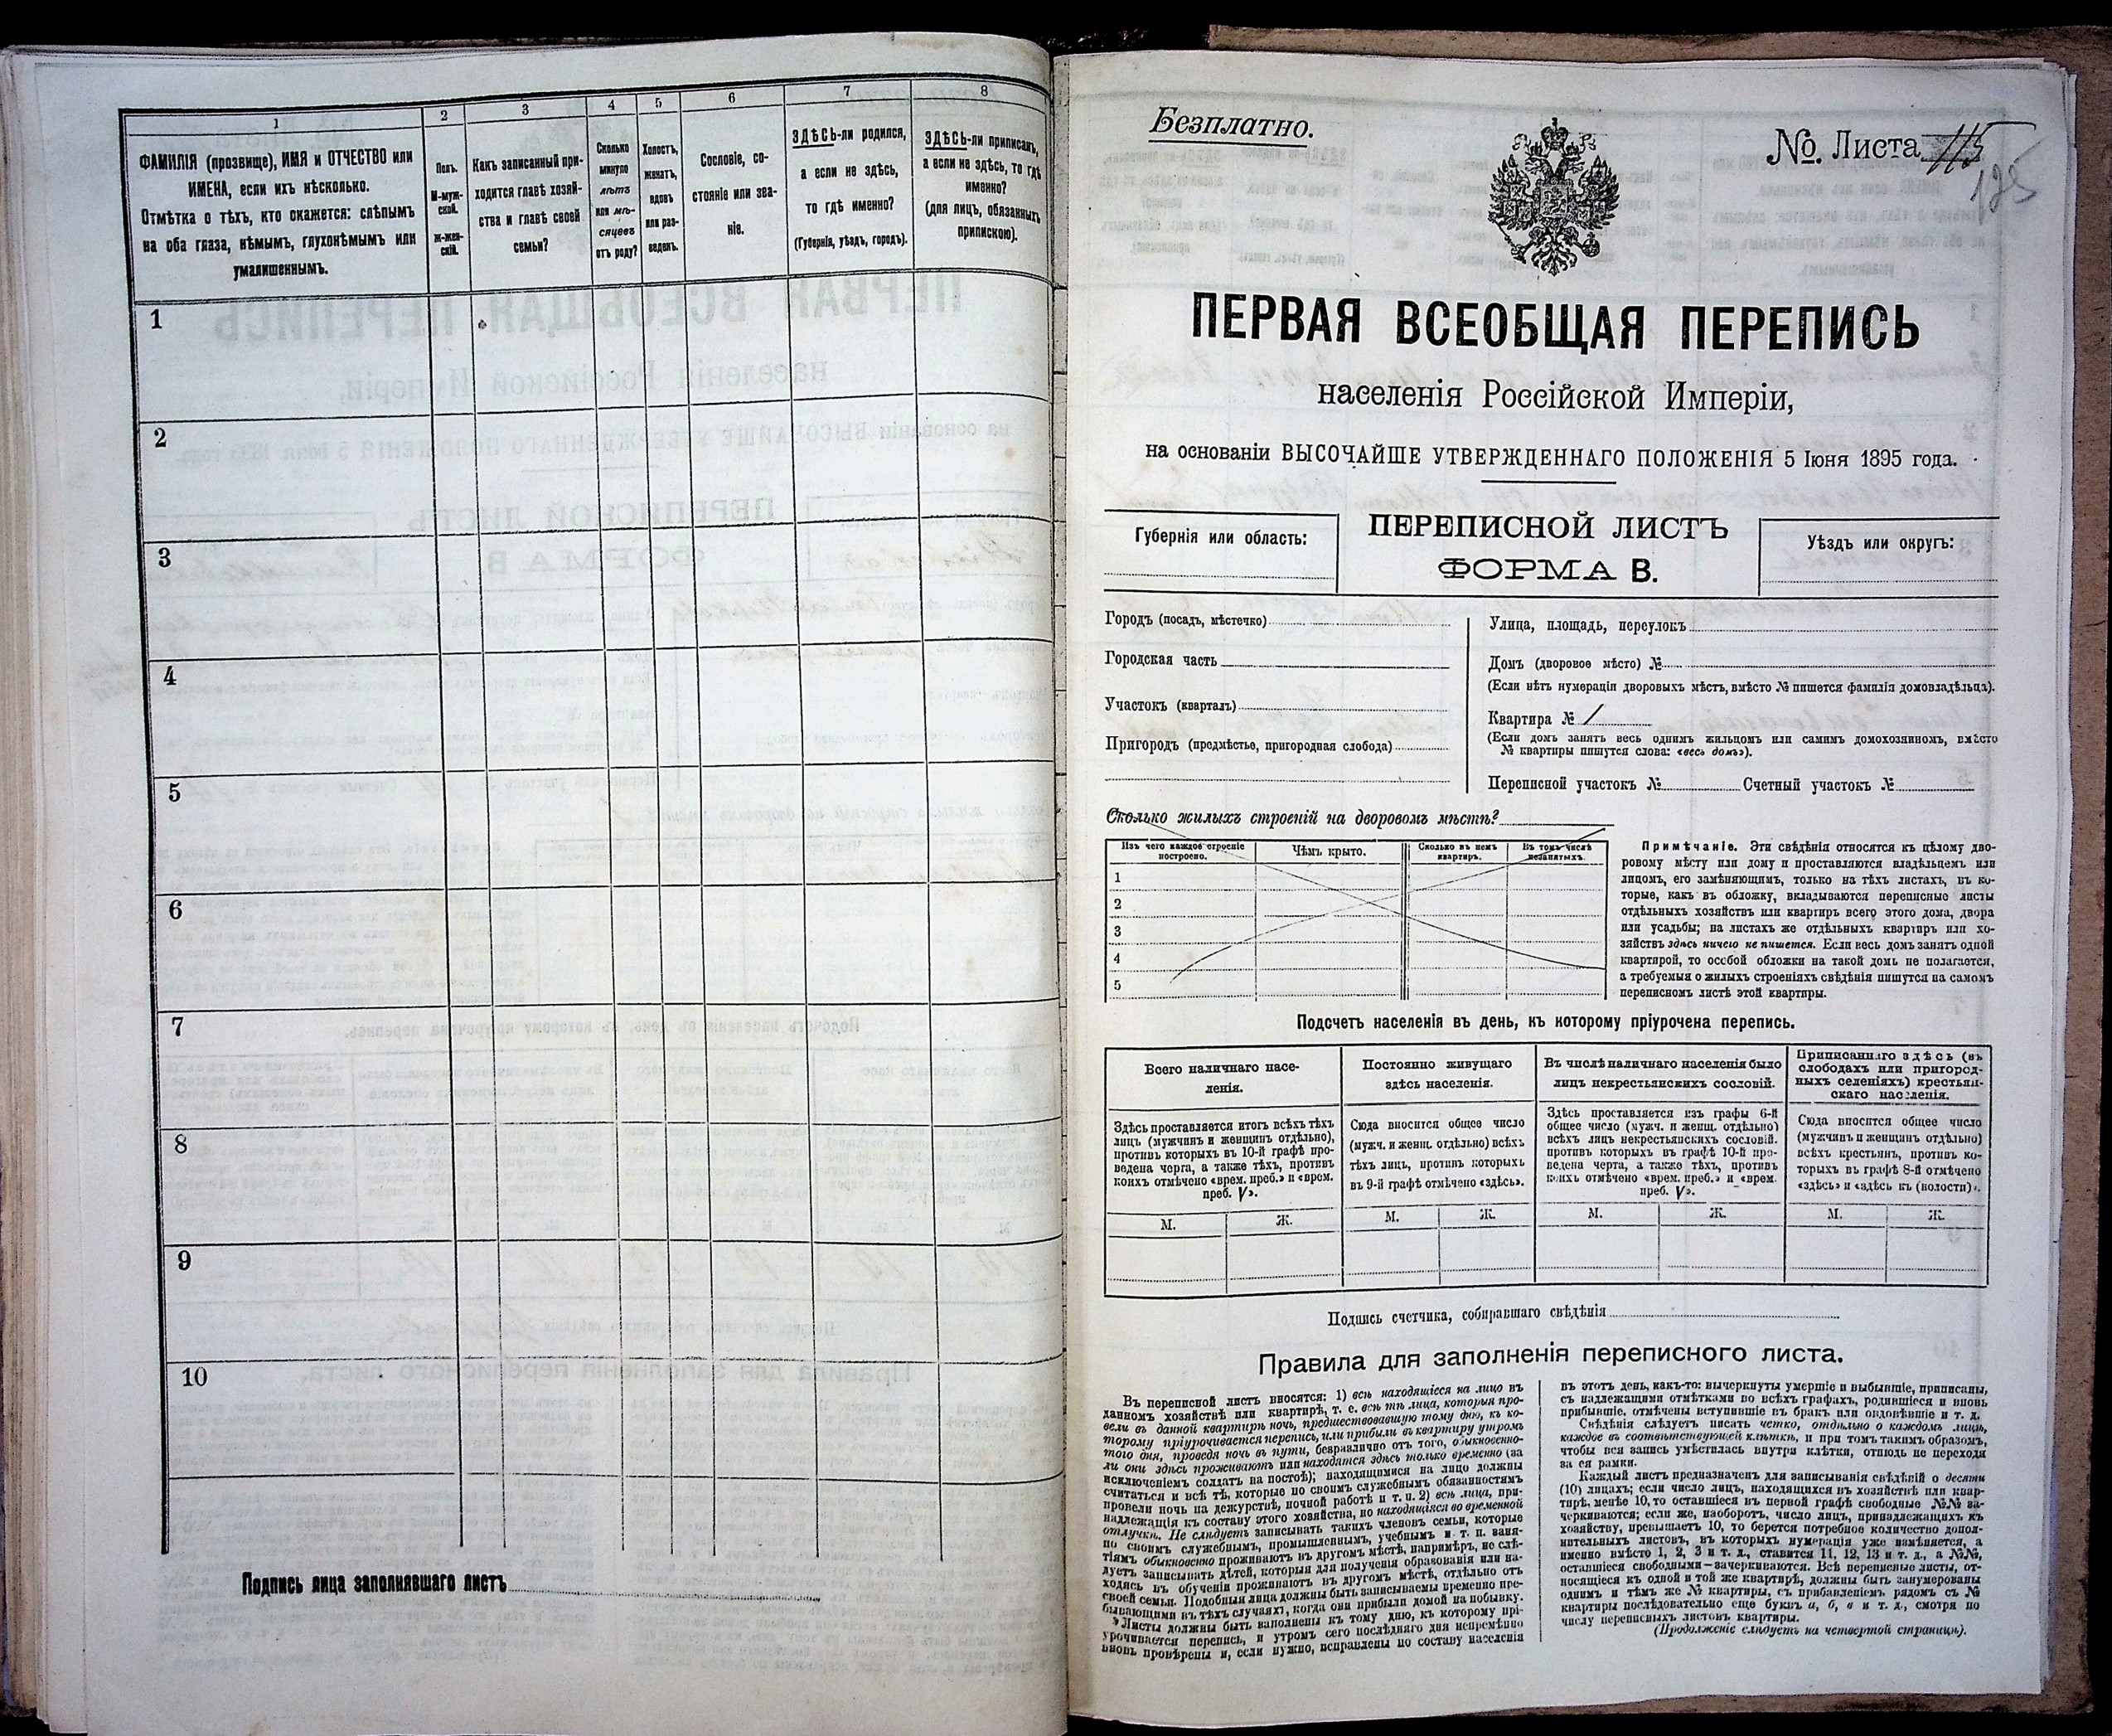 1
2
3
4
5
6
7
8
ФАМИЛІЯ (прозвище), ИМЯ и ОТЧЕСТВО или
ИМЕНА, если ихъ нѣсколько.
Отмѣтка о тѣхъ, кто окажется: слѣпымъ
на оба глаза, нѣмымъ, глухонѣмымъ или
умалишеннымъ.
Полъ.
М-муж-
ской.
Ж-жен-
скій.
Какъ записанный при-
ходится главѣ хозяй-
ства и главѣ своей
семьи?
Сколько
минуло
лѣтъ
или мѣ-
сяцевъ
отъ роду?
Холостъ,
женатъ,
вдовъ
или раз-
веденъ.
Сословіе, со-
стояніе или зва-
ніе.
ЗДѢСЬ-ли родился,
а если не здѣсь,
то гдѣ именно?
(Губернія, уѣздъ, городъ).
ЗДѢСЬ-ли приписанъ,
а если не здѣсь, то гдѣ
именно?
(для лицъ, обязанныхъ
припискою).
1
2
3
4
5
6
7
8
9
10
Подпись лица заполнявшаго листъ
Безплатно.
№ Листа 115
125
ПЕРВАЯ ВСЕОБЩАЯ ПЕРЕПИСЬ
населенія Россійской Имперіи,
на основаніи ВЫСОЧАЙШЕ УТВЕРЖДЕННАГО ПОЛОЖЕНІЯ 5 Іюня 1895 года.
Губернія или область:
ПЕРЕПИСНОЙ ЛИСТЪ
ФОРМА В.
Уѣздъ или округъ:
Городъ (посадъ, мѣстечко)
Городская часть
Участокъ (кварталъ)
Пригородъ (предмѣстье, пригородная слобода)
Улица, площадь, переулокъ
Домъ (дворовое мѣсто) №
(Если нѣтъ нумераціи дворовыхъ мѣстъ, вмѣсто № пишется фамилія домовладѣльца).
Квартира № /
(Если домъ занятъ весь однимъ жильцомъ или самимъ домохозяиномъ, вмѣсто
№ квартиры пишутся слова: «весь домъ»).
Переписной участокъ № Счетный участокъ №
Сколько жилыхъ строеній на дворовомъ мѣстѣ?
Изъ чего каждое строеніе
построено.
Чѣмъ крыто.
Сколько въ немъ
квартиръ.
Въ томъ числѣ
незанятыхъ.
1
2
3
4
5
Примѣчаніе. Эти свѣдѣнія относятся къ цѣлому дво-
ровому мѣсту или дому и проставляются владѣльцемъ или
лицомъ, его замѣняющимъ, только на тѣхъ листахъ, въ ко-
торые, какъ въ обложку, вкладываются переписные листы
отдѣльныхъ хозяйствъ или квартиръ всего этого дома, двора
или усадьбы; на листахъ же отдѣльныхъ квартиръ или хо-
зяйствъ здѣсь ничего не пишется. Если весь домъ занятъ одной
квартирой, то особой обложки на такой домъ не полагается,
а требуемыя о жилыхъ строеніяхъ свѣдѣнія пишутся на самомъ
переписномъ листѣ этой квартиры.
Подсчетъ населенія въ день, къ которому пріурочена перепись.
Всего наличнаго насе-
ленія.
Постоянно живущаго
здѣсь населенія.
Въ числѣ наличнаго населенія было
лицъ некрестьянскихъ сословій.
Приписаннаго здѣсь (въ
слободахъ или пригород-
ныхъ селеніяхъ) крестьян-
скаго населенія.
Здѣсь проставляется итогъ всѣхъ тѣхъ
лицъ (мужчинъ и женщинъ отдѣльно),
противъ которыхъ въ 10-й графѣ про-
ведена черта, а также тѣхъ, противъ
коихъ отмѣчено «врем. преб.» и «врем.
преб. V».
Сюда вносится общее число
(мужч. и женщ. отдѣльно) всѣхъ
тѣхъ лицъ, противъ которыхъ
въ 9-й графѣ отмѣчено «здѣсь».
Здѣсь проставляется изъ графы 6-й
общее число (мужч. и женщ. отдѣльно)
всѣхъ лицъ некрестьянскихъ сословій,
противъ которыхъ въ графѣ 10-й про-
ведена черта, а также тѣхъ, противъ
коихъ отмѣчено «врем. преб.» и «врем.
преб. V».
Сюда вносится общее число
(мужчинъ и женщинъ отдѣльно)
всѣхъ крестьянъ, противъ ко-
торыхъ въ графѣ 8-й отмѣчено
«здѣсь» и «здѣсь къ (волости)».
М. Ж. М. Ж. М. Ж. М. Ж.
Подпись счетчика, собиравшаго свѣдѣнія
Правила для заполненія переписного листа.
Въ переписной листъ вносятся: 1) всѣ находящіеся на лицо въ
данномъ хозяйствѣ или квартирѣ, т. е. всѣ тѣ лица, которыя про-
вели въ данной квартирѣ ночь, предшествовавшую тому дню, къ ко-
торому пріурочивается перепись, или прибыли въ квартиру утромъ
того дня, проведя ночь въ пути, безразлично отъ того, обыкновенно-
ли они здѣсь проживаютъ или находятся здѣсь только временно (за
исключеніемъ солдатъ на постоѣ); находящимися на лицо должны
считаться и всѣ тѣ, которые по своимъ служебнымъ обязанностямъ
провели ночь на дежурствѣ, ночной работѣ и т. п. 2) всѣ лица, при-
надлежащія къ составу этого хозяйства, но находящіяся во временной
отлучкѣ. Не слѣдуетъ записывать такихъ членовъ семьи, которые
по своимъ служебнымъ, промышленнымъ, учебнымъ и т. п. заня-
тіямъ обыкновенно проживаютъ въ другомъ мѣстѣ, напримѣръ, не слѣ-
дуетъ записывать дѣтей, которыя для полученія образованія или на-
ходясь въ обученіи проживаютъ въ другомъ мѣстѣ, отдѣльно отъ
своей семьи. Подобныя лица должны быть записываемы временно пре-
бывающими въ тѣхъ случаяхъ, когда они прибыли домой на побывку.
Листы должны быть заполнены къ тому дню, къ которому прі-
урочивается перепись, и утромъ сего послѣдняго дня непремѣнно
вновь провѣрены и, если нужно, исправлены по составу населенія
въ этотъ день, какъ-то: вычеркнуты умершіе и выбывшіе, приписаны,
съ надлежащими отмѣтками во всѣхъ графахъ, родившіеся и вновь
прибывшіе, отмѣчены вступившіе въ бракъ или овдовѣвшіе и т. д.
Свѣдѣнія слѣдуетъ писать четко, отдѣльно о каждомъ лицѣ,
каждое въ соотвѣтствующей клѣткѣ, и при томъ такимъ образомъ,
чтобы вся запись умѣстилась внутри клѣтки, отнюдь не переходя
за ея рамки.
Каждый листъ предназначенъ для записыванія свѣдѣній о десяти
(10) лицахъ; если число лицъ, находящихся въ хозяйствѣ или квар-
тирѣ, менѣе 10, то оставшіеся въ первой графѣ свободные №№ за-
черкиваются; если же, наоборотъ, число лицъ, принадлежащихъ къ
хозяйству, превышаетъ 10, то берется потребное количество допол-
нительныхъ листовъ, въ которыхъ нумерація уже измѣняется, а
именно вмѣсто 1, 2, 3 и т. д., ставится 11, 12, 13 и т. д., а №№,
оставшіеся свободными—зачеркиваются. Всѣ переписные листы, от-
носящіеся къ одной и той же квартирѣ, должны быть занумерованы
однимъ и тѣмъ же № квартиры, съ прибавленіемъ рядомъ съ №
квартиры послѣдовательно еще буквъ а, б, в и т. д., смотря по
числу переписныхъ листовъ квартиры.
(Продолженіе слѣдуетъ на четвертой страницѣ).